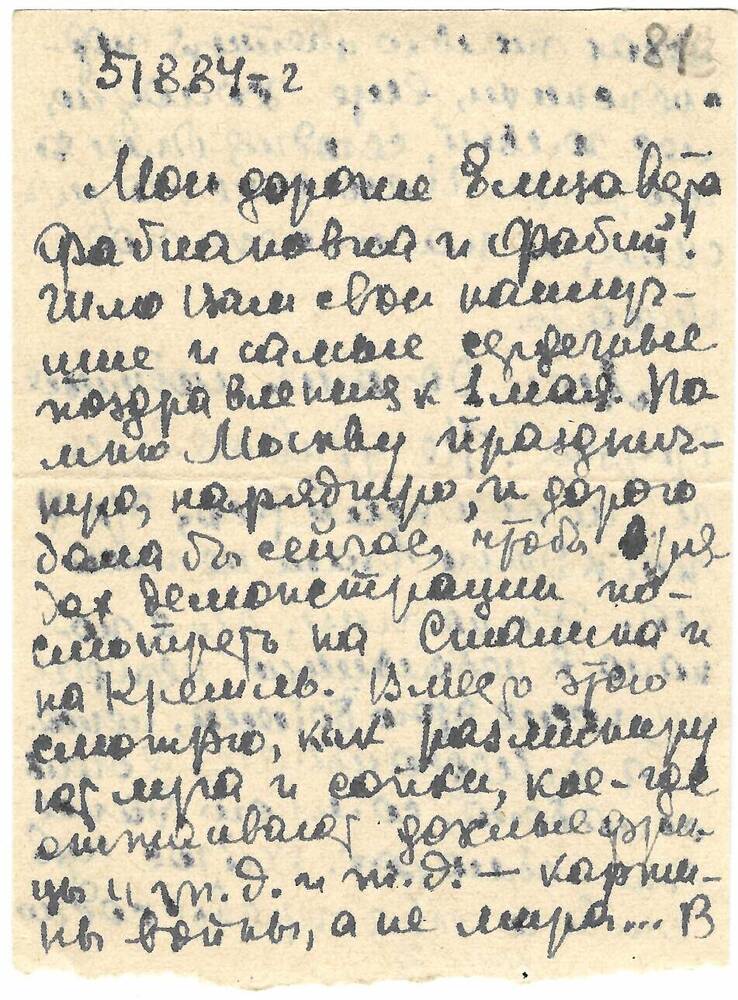 51884-г
81
Мои дорогие Елизавета
Фабиановна и Фабий!
Шлю Вам свои наилуч-
шие и самые сердечные
поздравления к 1 мая. По-
мню Москву празднич-
ную, нарядную, и дорого
дала бы сейчас, чтобы в ря-
дах демонстрации по-
смотреть на Сталина и
на Кремль. Вместо этого
смотрю, как разминиру
ют луга и сопки, кое-где
оттаивают дохлые фри-
цы и т.д. и т.д. – карти-
ны войны, а не мира... В